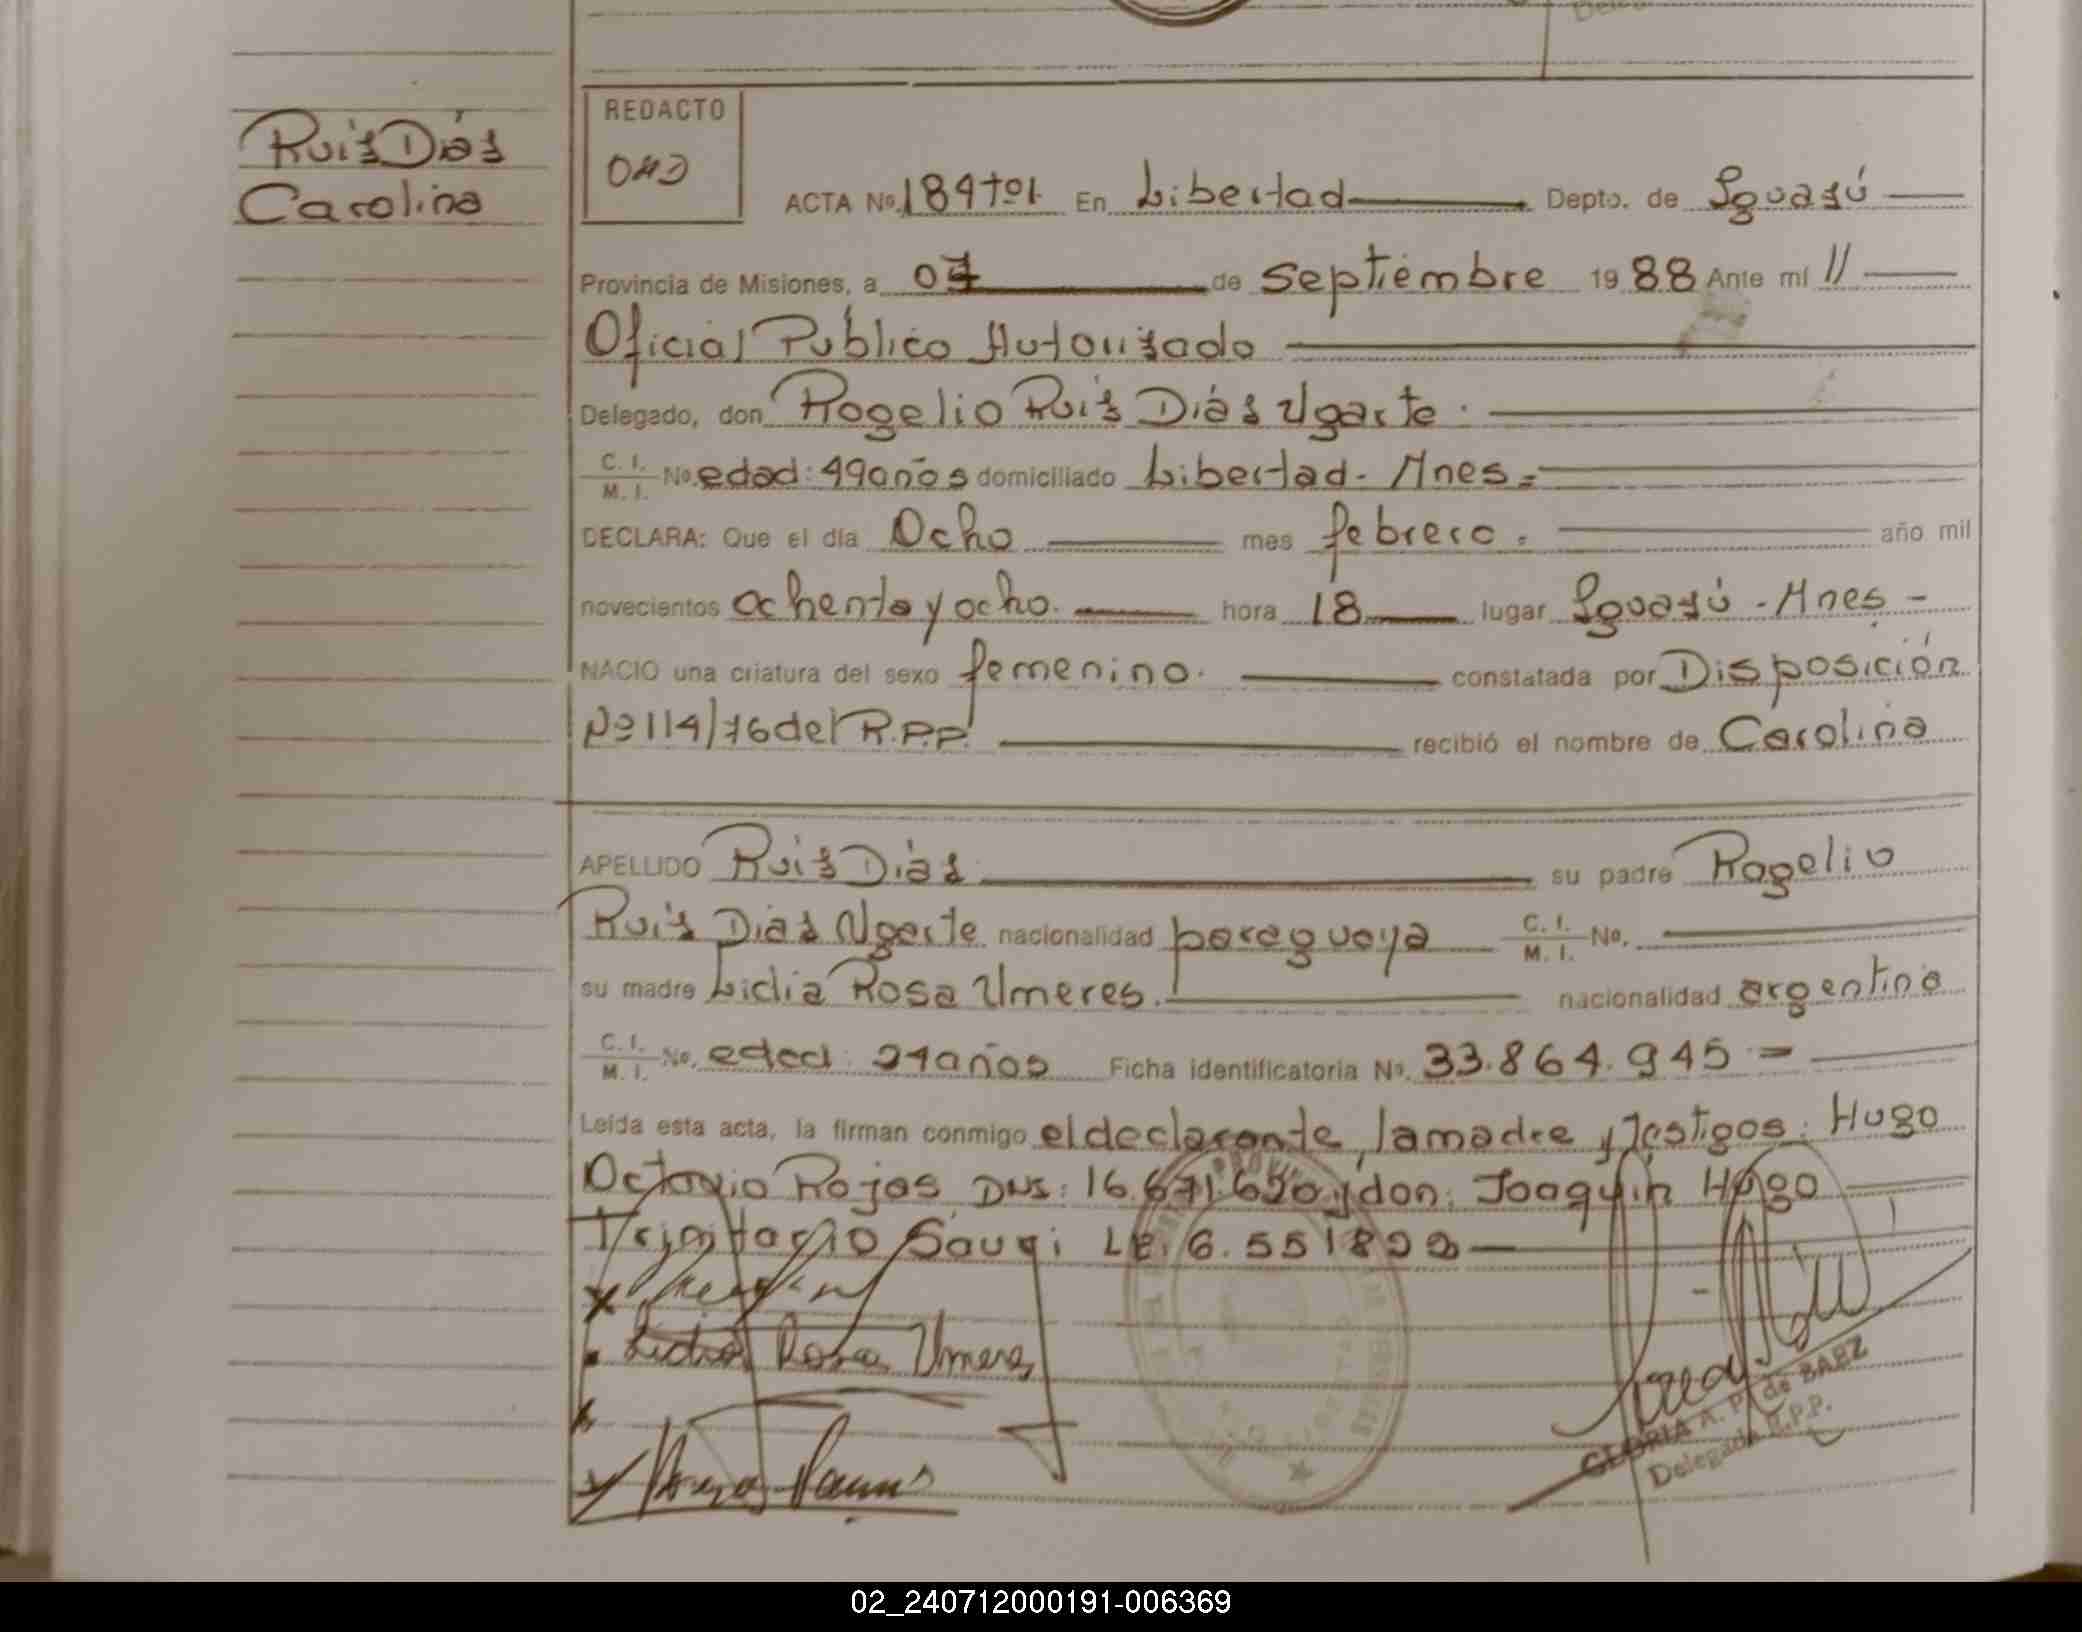 Ruis Dias
Carolina
REDACTO
ACTA Nº 184 tº1 En Libertad Depto. de Iguasú
Provincia de Misiones, a 07 de Septiembre 1988 Ante mí //
Oficial Público Autorisado
Delegado, don Rogelio Ruis Dias Ugarte.
C. I. M. I. Nº. edad: 49 años domiciliado Libertad - Mnes =
DECLARA: Que el día Ocho mes febrero. año mil
novecientos ochenta y ocho. hora 18 lugar Iguasú - Mnes -
NACIO una criatura del sexo femenino. constatada por Disposición
Nº 114/76 del R.P.P. recibió el nombre de Carolina
APELLIDO Ruis Dias su padre Rogelio
Ruis Dias Ugarte nacionalidad paraguaya C. I. M. I. Nº.
su madre Lidia Rosa Umeres. nacionalidad argentina
C. I. M. I. Nº. edad: 24 años Ficha identificatoria Nº. 33.864.945 =
Leída esta acta, la firman conmigo el declarante, la madre y Testigos: Hugo
Octavio Rojas DNI: 16.671.620 y don: Joaquín Hugo
Saugi LE. 6.551
Lidia Rosa Umeres
GLORIA A. P. de BAEZ
Delegada R.P.P.
02_240712000191-006369